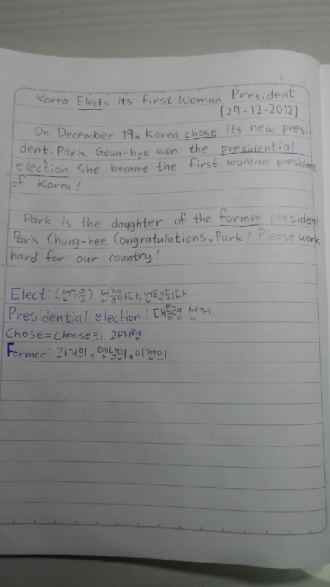 Korea Elects Its First Woman President
[27-12-2012]
On December 19, Korea chose its new presi-
dent. Park Geun-hye won the presidential
election. She became the first woman president
of Korea!
Park is the daughter of the former president
Park Chung-hee. Congratulations, Park! Please work
hard for our country!
Elect: (선거로) 선출하다, 선택하다.
Presidential election: 대통령 선거.
Chose = Choose의 과거형
Former: 과거의, 옛날의, 이전의